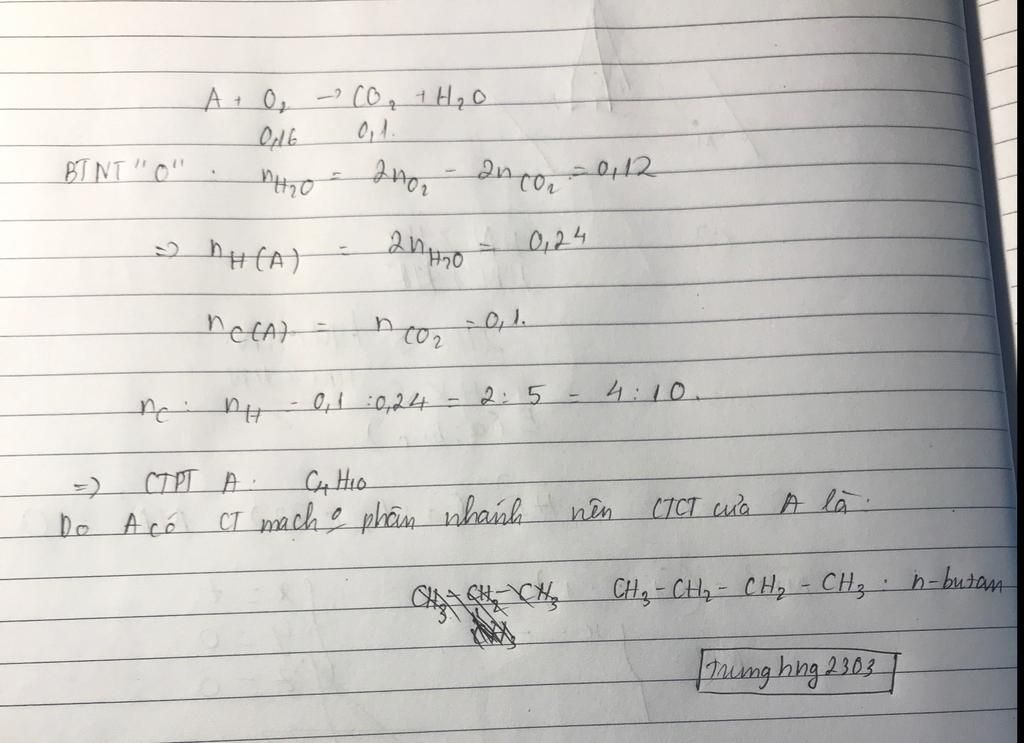 A + O₂ → CO₂ + H₂O
0,16 0,1.
BTNT "O" . n_H₂O = 2n_O₂ - 2n_CO₂ = 0,12
=> n_H(A) = 2n_H₂O = 0,24
n_C(A) = n_CO₂ = 0,1.
n_C : n_H = 0,1 : 0,24 = 2 : 5 = 4 : 10.
=> CTPT A . C₄H₁₀
Do A có CT mạch o phân nhánh nên CTCT của A là:
CH₃ - CH₂ - CH₃ CH₃ - CH₂ - CH₂ - CH₃ : n-butan
trunghng2303